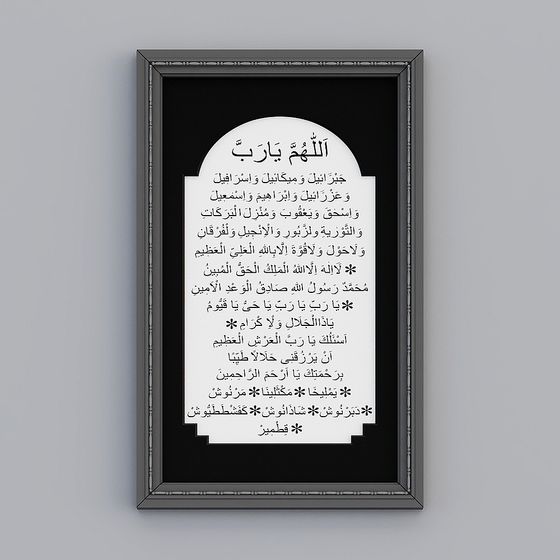 اَللّٰهُمَّ يَارَبَّ
جَبْرَائِيلَ وَمِيكَائِيلَ وَاِسْرَافِيلَ
وَعَزْرَائِيلَ وَاِبْرَاهِيمَ وَاِسْمٰعِيلَ
وَاِسْحٰقَ وَيَعْقُوبَ وَمُنْزِلَ الْبَرَكَاتِ
وَالتَّوْرٰيةِ ولزَّبُورِ وَالْاِنْجِيلِ وَلْفُرْقَانِ
وَلَاحَوْلَ وَلَاقُوَّةَ اِلَّابِاللهِ الْعَلِيِّ الْعَظِيمِ
✻ لَااِلهَ اِلَّااللهُ الْمَلِكُ الْحَقُّ الْمُبِينُ
مُحَمَّدٌ رَسُولُ اللهِ صَادِقُ الْوَعْدِ الْاَمِينِ
✻ يَا رَبِّ يَا رَبِّ يَا حَىُّ يَا قَيُّومُ
يَاذَاالْجَلَالِ وَلْاِ كْرَامِ ✻
اَسْئَلُكَ يَا رَبَّ الْعَرْشِ الْعَظِيمِ
اَنْ يَرْزُقَنِى حَلَالًا طَيِّبًا
بِرَحْمَتِكَ يَا اَرْحَمَ الرَّاحِمِينَ
✻ يَمْلِيخَا ✻ مَكْثَلِينَا ✻ مَرْنُوشْ
✻ دَبَرْنُوشْ ✻ شَاذَنُوشْ ✻ كَفَشْطَطَيُّوشْ
✻ قِطْمِيرْ